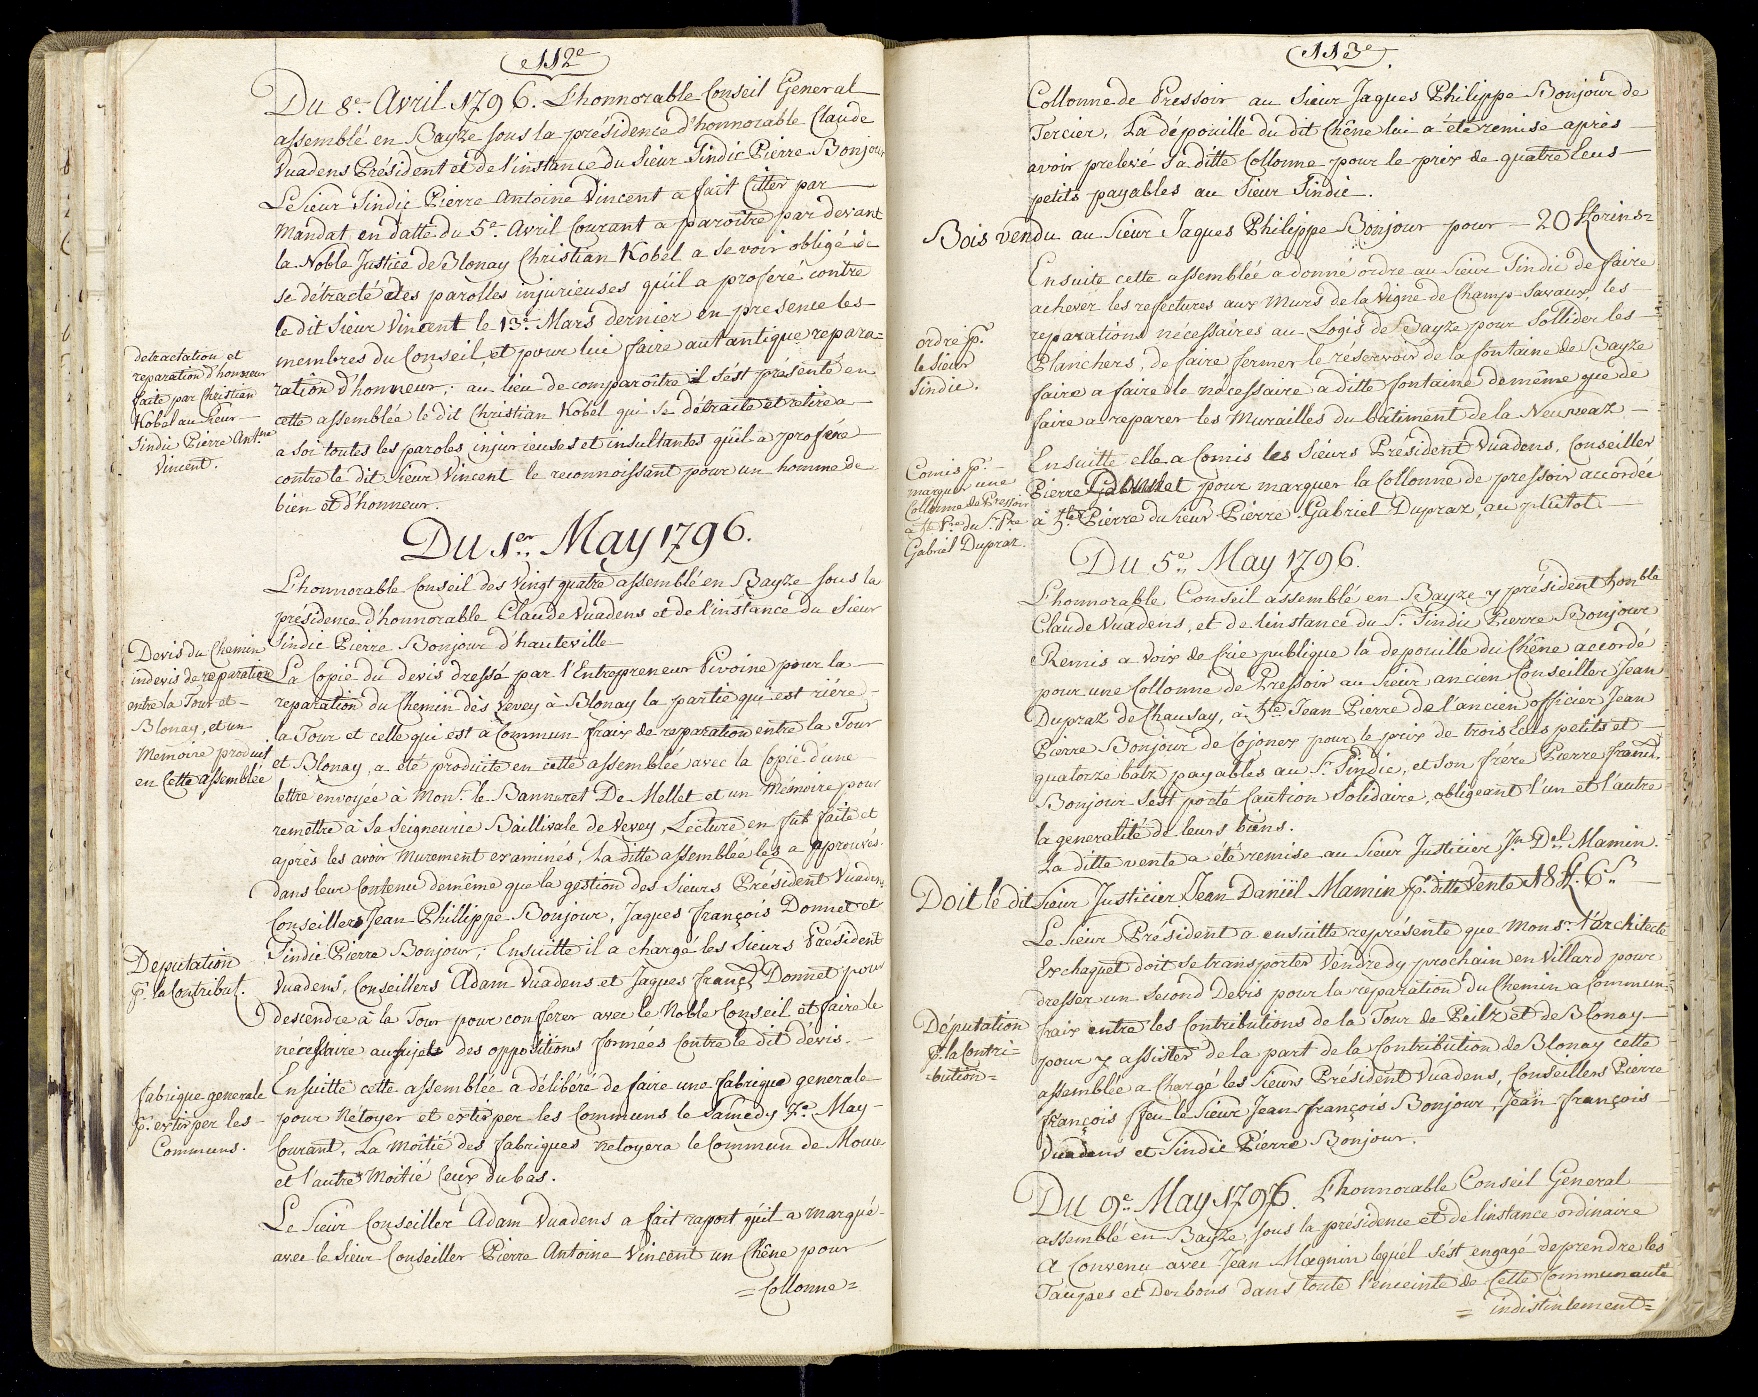 112e
Du 8e Avril 1796. L'honnorable Conseil General
assemblé en Bayze sous la présidence d'honnorable Claude
Vuadens Président et de l'instance du Sieur Sindic Pierre Bonjour
Le Sieur Sindic Pierre Antoine Vincent a fait Citter par
Mandat en datte du 5e. Avril Courant a paroître par devant
la Noble Justice de Blonay Christian Kobel a se voir obligé à
se détracté des parolles injurieuses qu'il a proferé contre
le dit Sieur Vincent le 13e. Mars dernier en presence les
membres du Conseil, et pour lui faire autantique repara=
detractation et
reparation d'honneur
faite par Christian
Kobel au Sieur
Sindic Pierre Antne
Vincent.
ration d'honneur; au lieu de comparoître il s'est présenté en
cette assemblée le dit Christian Kobel qui se détracte et retire a
a soi toutes les paroles injurieuses et insultantes qu'il a proféré
contre le dit Sieur Vincent le reconnoissant pour un homme de
bien et d'honneur.
Du 1er. May 1796.
L'honnorable Conseil des Vingt quatre assemblé en Bayze sous la
présidence d'honnorable Claude Vuadens et de l'instance du Sieur
Sindic Pierre Bonjour d'hauteville
Devis du Chemin
indevis de reparation
entre la Tour et
Blonay, et un
Mémoire produit
en Cette assemblée
La Copie du devis dressé par l'Entrepreneur Pivoine pour la
reparation du Chemin dès Vevey à Blonay la partie qui est riére
la Tour et celle qui est à Commun frais de reparation entre la Tour
et Blonay, a été produite en cette assemblée avec la Copie d'une
lettre envoyée à Monsr. le Banneret De Mellet et un Mémoire pour
remettre à Sa Seigneurie Baillivale de Vevey, Lecture en fut faite et
après les avoir Murement examinés, La ditte assemblée les a approuvés
dans leur Contenu demême que la gestion des Sieurs Président Vuadens
Conseillers Jean Phillippe Bonjour, Jaques françois Donnet et
Sindic Pierre Bonjour; Ensuitte il a chargé les Sieurs Président
Deputation
pr. la Contribut.
Vuadens, Conseillers Adam Vuadens et Jaques franç. Donnet pour
descendre à la Tour pour conferer avec le Noble Conseil et faire le
nécessaire au sujet des oppositions formées Contre le dit dévis.
fabrique generale
pr. extirper les
Communs.
Ensuitte cette assemblée a délibéré de faire une fabrique generale
pour Netoyer et extirper les Communs le Samedy 7e. May
Courant, La moitié des fabriques netoyera le Commun de Mouve
et l'autre Moitié Ceux du bas.
Le Sieur Conseiller Adam Vuadens a fait raport qu'il a marqué
avec le Sieur Conseiller Pierre Antoine Vincent un Chêne pour
= Collonne =
113e.
Collonne de Pressoir au Sieur Jaques Philippe Bonjour de
Tercier, La dépouille du dit Chêne lui a été remise après
avoir prelevé sa ditte Collonne pour le prix de quatre Ecus
petits payables au Sieur Sindic.
Bois vendu au Sieur Jaques Philippe Bonjour pour 20 florins=
Ensuite cette assemblée a donné ordre au Sieur Sindic de faire
achever les refectures aux Murs de la Vigne de Champ Savaux, les
ordre pr.
le Sieur
Sindic.
reparations nécessaires au Logis de Bayze pour Sollider les
Planchers, de faire fermer le réservoir de la fontaine de Bayze
faire a faire le nécessaire a ditte fontaine demême que de
faire a reparer les Murailles du bâtiment de la Neuveaz.
Comis pr.
marquer une
Collonne de Pressoir
à hte Pre. du Sr. Pre
Gabriel Dupraz.
Ensuitte elle a Comis les Sieurs Président Vuadens, Conseiller
Pierre et pour marquer la Collonne de pressoir accordée
à hte Pierre du Sieur Pierre Gabriel Dupraz, au plutot.
Du 5e. May 1796.
L'honnorable Conseil assemblé en Bayze y président honble
Claude Vuadens, et de linstance du Sr. Sindic Pierre Bonjour
Remis a Voix de Crie publique la depouille du Chêne accordé
pour une Collonne de Pressoir au Sieur ancien Conseiller Jean
Dupraz de Chausay, à hte. Jean Pierre de l'ancien officier Jean
Pierre Bonjour de Cojonex pour le prix de trois Ecus petits et
quatorze batz payables au Sr. Sindic, et son frére Pierre franç.
Bonjour s'est porté Caution Solidaire, obligeant l'un et l'autre
la generalité de leurs biens.
La ditte vente a été remise au Sieur Justicier Jn Del. Mamin.
Doit le dit Sieur Justicier Jean Daniël Mamin pr. ditte Vente 18 fl. 6 s.
Le Sieur Président a ensuitte représente que Monsr. l'architecte
Exchaquet doit se transporter Vendredy prochain en Villard pour
dresser un Second Devis pour la reparation du Chemin a Commun
Députation
pr. la Contri=
bution=
fraix entre les Contributions de la Tour de Peilz et de Blonay
pour y assister de la part de la Contribution de Blonay cette
assemblé a Chargé les Sieurs Président Vuadens, Conseillers Pierre
françois feu le Sieur Jean françois Bonjour, Jean françois
Vuadens et Sindic Pierre Bonjour.
Du 9e. May 1796. L'honnorable Conseil General
assemblé en Bayze, sous la présidence et de linstance ordinaire
a Convenu avec Jean Magnin lequel s'est engagé de prendre les
Taupes et Derbons dans toute l'enceinte de Cette Communauté
= indistintement =